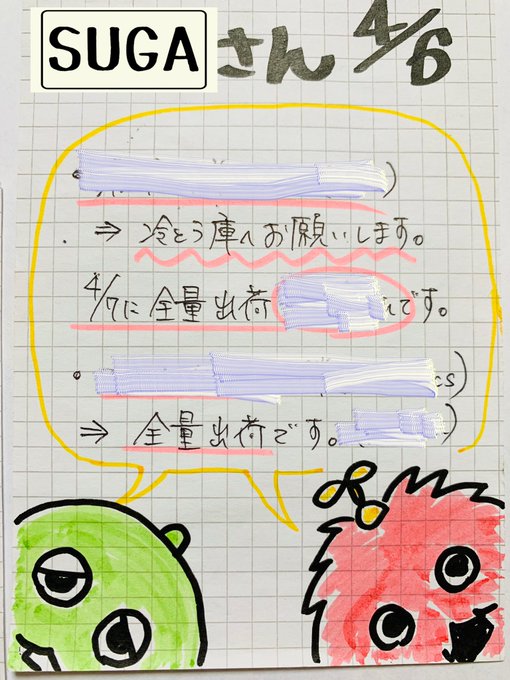 SUGAさん 4/6
⇒ 冷とう庫へお願いします。
4/7に全量出荷 です。
cs)
⇒ 全量出荷です。